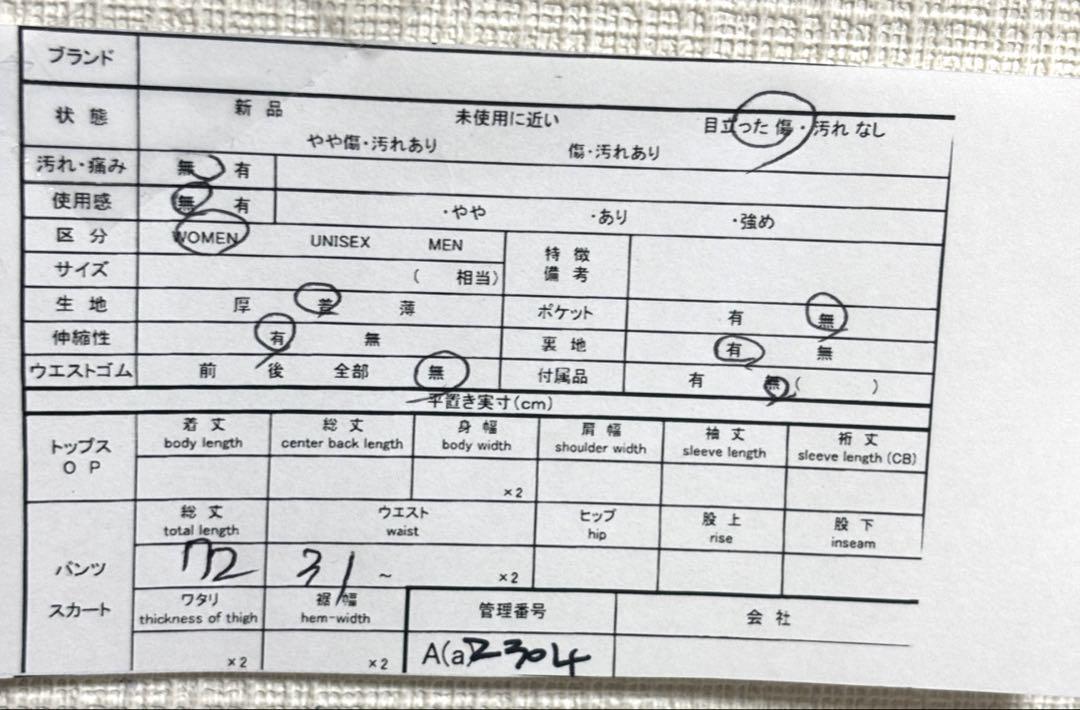 ブランド
状態 新品 未使用に近い 目立った傷・汚れなし
やや傷・汚れあり 傷・汚れあり
汚れ・痛み 無 有
使用感 無 有 ・やや ・あり ・強め
区分 WOMEN UNISEX MEN 特徴備考
サイズ ( 相当)
生地 厚 普 薄 ポケット 有 無
伸縮性 有 無 裏地 有 無
ウエストゴム 前 後 全部 無 付属品 有 無 ( )
平置き実寸(cm)
トップス OP 着丈 総丈 身幅 肩幅 袖丈 裄丈
body length center back length body width shoulder width sleeve length sleeve length (CB)
×2
パンツ スカート 総丈 ウエスト ヒップ 股上 股下
total length waist hip rise inseam
72 31 ~ ×2
ワタリ 裾幅 管理番号 会社
thickness of thigh hem-width
×2 ×2 A(a)2304